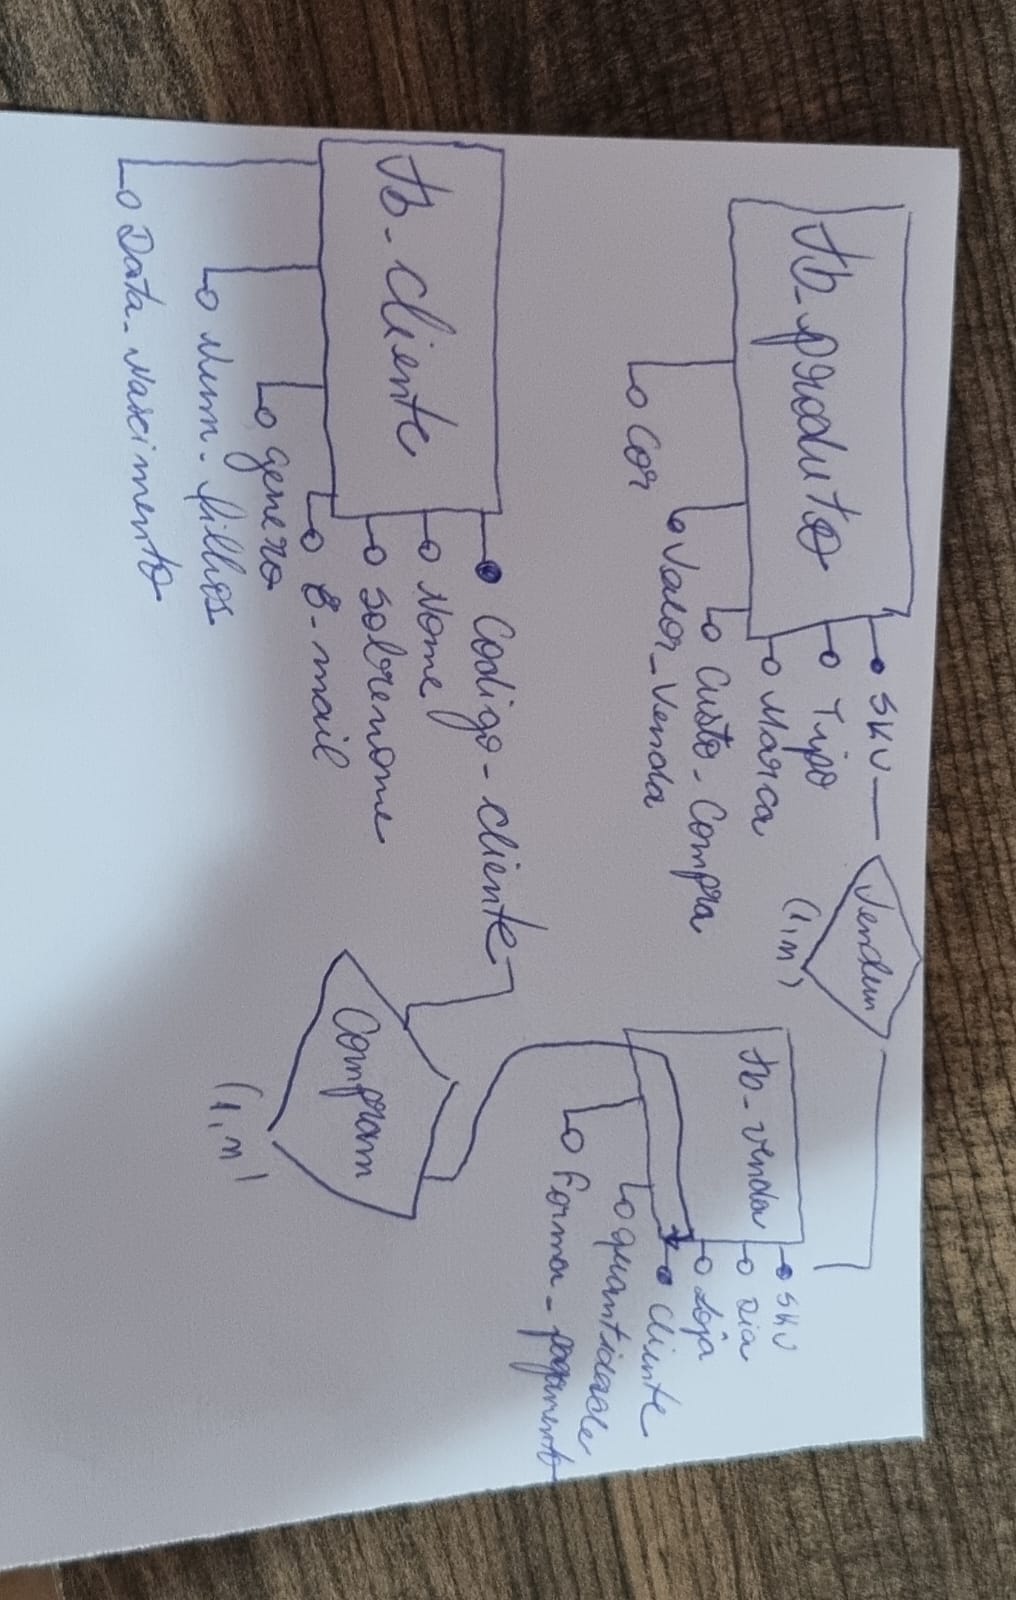 tb_produto
SKU
Tipo
Marca
Custo_Compra
Valor_Venda
Cor
Vendem
(1,n)
tb_venda
SKU
Dia
Loja
Cliente
quantidade
Forma_pagamento
tb_cliente
Codigo_cliente
Nome
Sobrenome
E-mail
genero
Num_filhos
Data_Nascimento
Compram
(1,n)